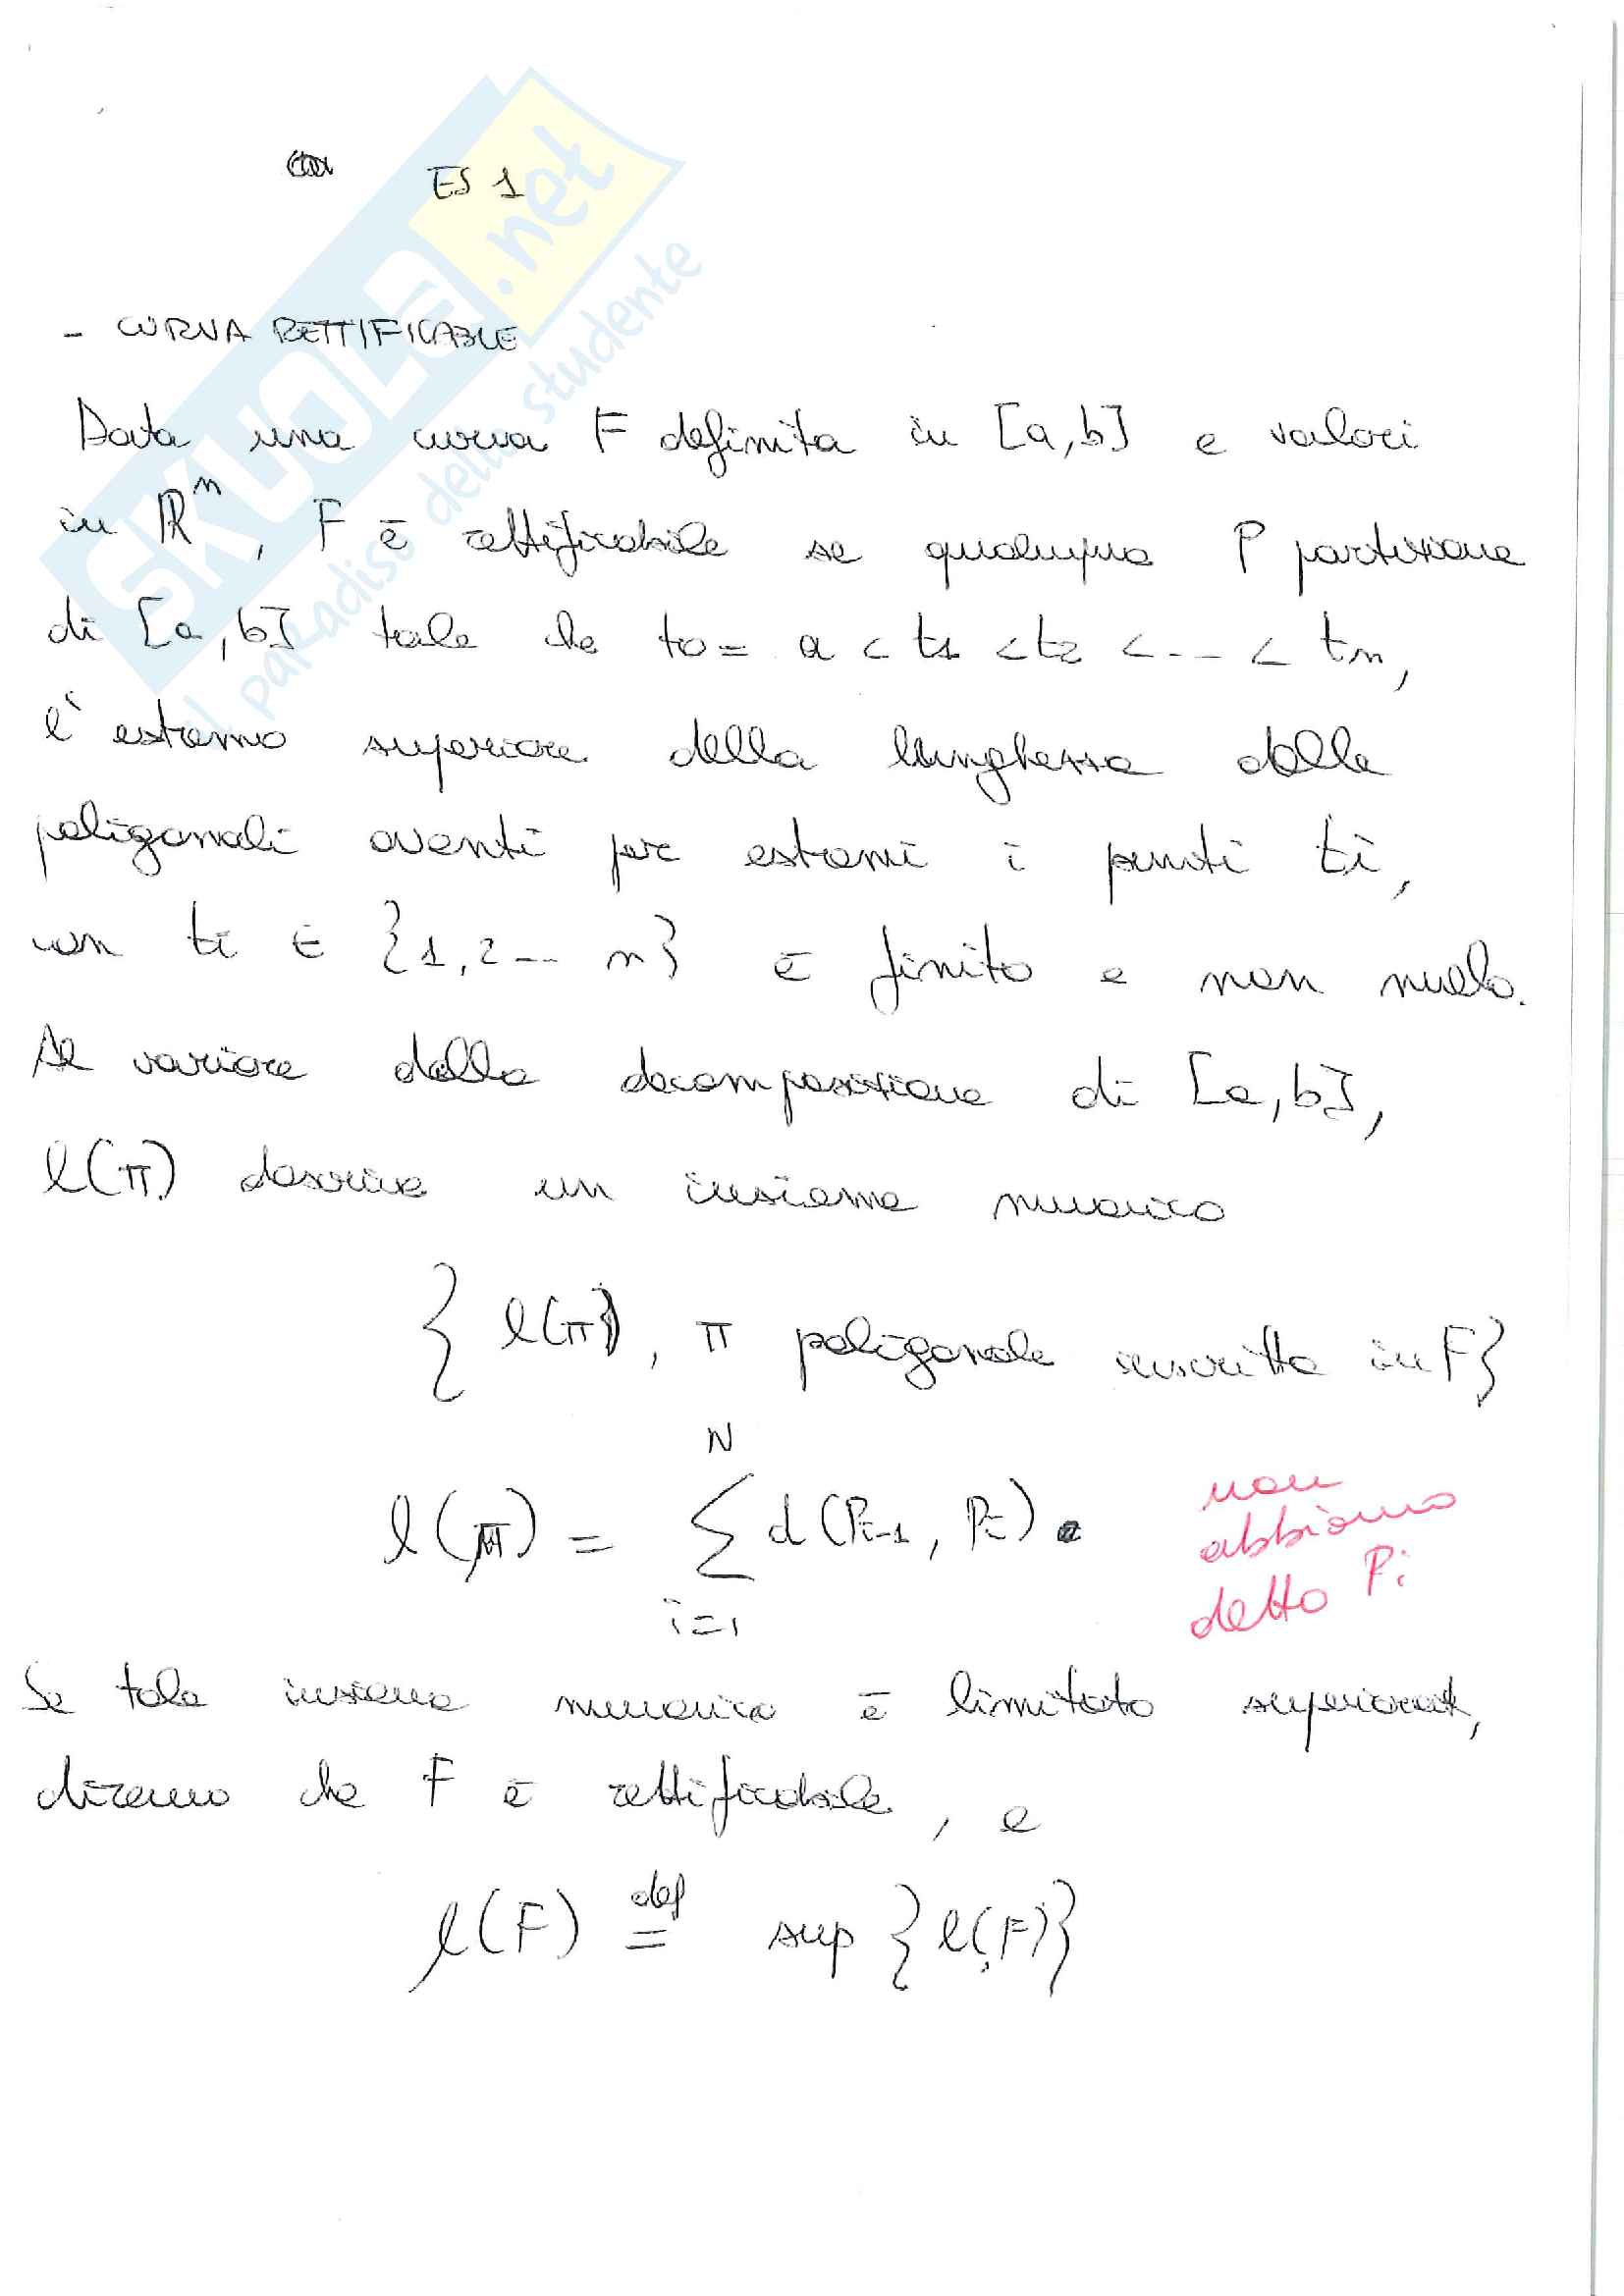 ES 1
- CURVA RETTIFICABLE
Data una curva F definita in [a,b] e valori
in ℝⁿ, F è rettificabile se qualunque P partizione
di [a,b] tale che t0 = a < t1 < t2 < ... < tn,
l'estremo superiore della lunghezza delle
poligonali aventi per estremi i punti ti,
con ti ∈ {1,2... n} è finito e non nullo.
Al variare della decomposizione di [a,b],
l(π) descrive un insieme numerico
{ l(π), π poligonale inscritta in F}
l(π) = ∑_{i=1}^{N} d(Pi-1, Pi)
non
abbiamo
detto Pi
Se tale insieme numerico è limitato superiormt,
diremo che F è rettificabile, e
l(F) def= sup {l(F)}
SKUOLA.net
il paradiso dello studente